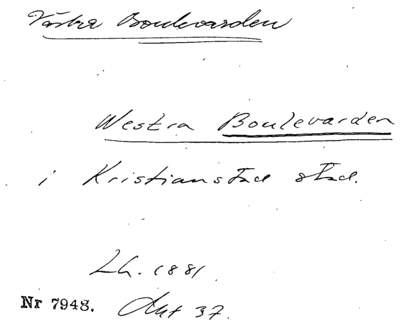 Västra Boulevarden
Westra Boulevarden
i Kristianstad stad.
Lh. 1881.
Nr 7948. Akt 37.